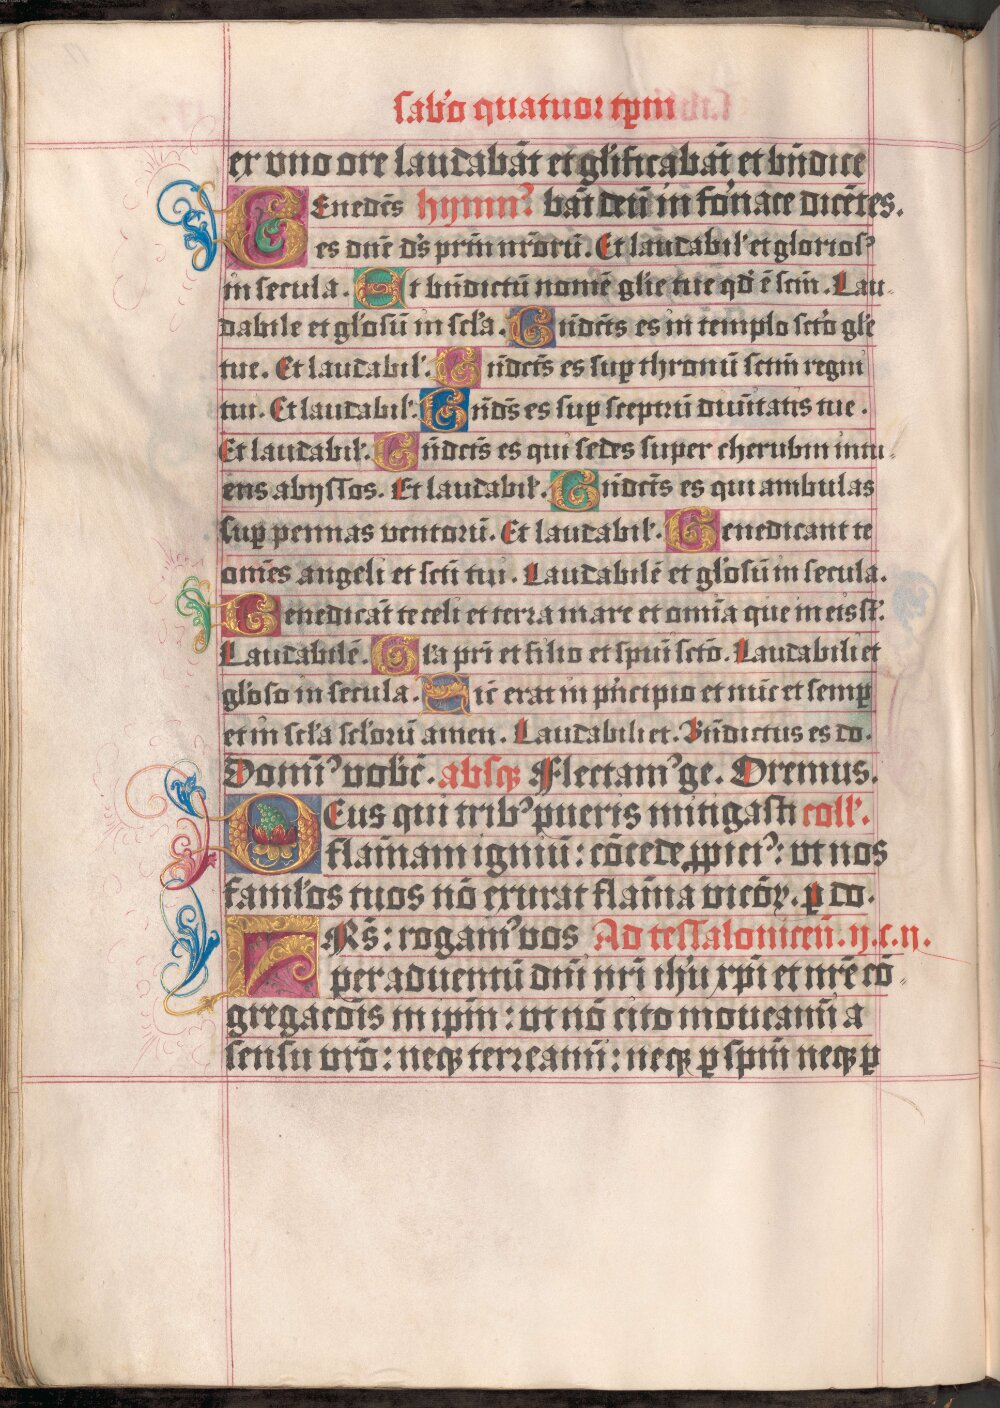 sabᵒo quatuor tp̄m
ex vno ore laudabāt et gl̓ificabāt et bn̄dice
Benedc̄s hymnꝰ bāt deū in fornace dicētes.
es dn̄e dꝰs prm̄ nr̄orū. Et laudabil̓ et gloriosꝰ
in secula. Et bn̄dictū nomē gl̓ie tue qd̓ ē scm̄. Lau
dabile et gl̓osū in scl̓a. Bn̄dcts̄ es in templo scō gl̓e
tue. Et laudabil̓. Bn̄dcts̄ es suꝑ thronū scm̄ regni
tui. Et laudabil̓. Bn̄dꝰs es suꝑ sceptrū diuitatis tue.
Et laudabil̓. Bn̄dcts̄ es qui sedes super cherubin intu
ens abyssos. Et laudabil̓. Bn̄dcts̄ es qui ambulas
suꝑ pennas ventorū. Et laudabil̓. Benedicant te
om̄es angeli et scti̅ tui. Laudabilē et gl̓osū in secula.
Benedicāt te celi et terra mare et om̄ia que in eis st̄.
Laudabilē. Gl̓a pr̄i et filio et spūi sctō. Laudabili et
gl̓oso in secula. Sic̄ erat in pn̓cipio et nūc et semꝑ
et in scl̓a scl̓orū amen. Laudabili et. Bn̄dictus es do.
Domīꝰ vobc̄. absqꝫ Flectamꝰ ge. Oremus.
Deus qui tribꝰ pueris mitigasti coll̓.
flam̄am igniū: cōcede ꝓpicꝰ: vt nos
faml̓os tuos nō exurat flam̄a viciōꝝ. ꝑ do.
FRs̄: rogamꝰ vos Ad tessalonicen̄. ij. c. ij.
per aduentū dn̄i nr̄i ih̓u xp̄i et nr̄e cō
gregacōis in ip̄m: vt nō cito moueam̄i a
sensu vr̄o: neqꝫ terream̄i: neqꝫ ꝑ sp̄m neqꝫ ꝑ